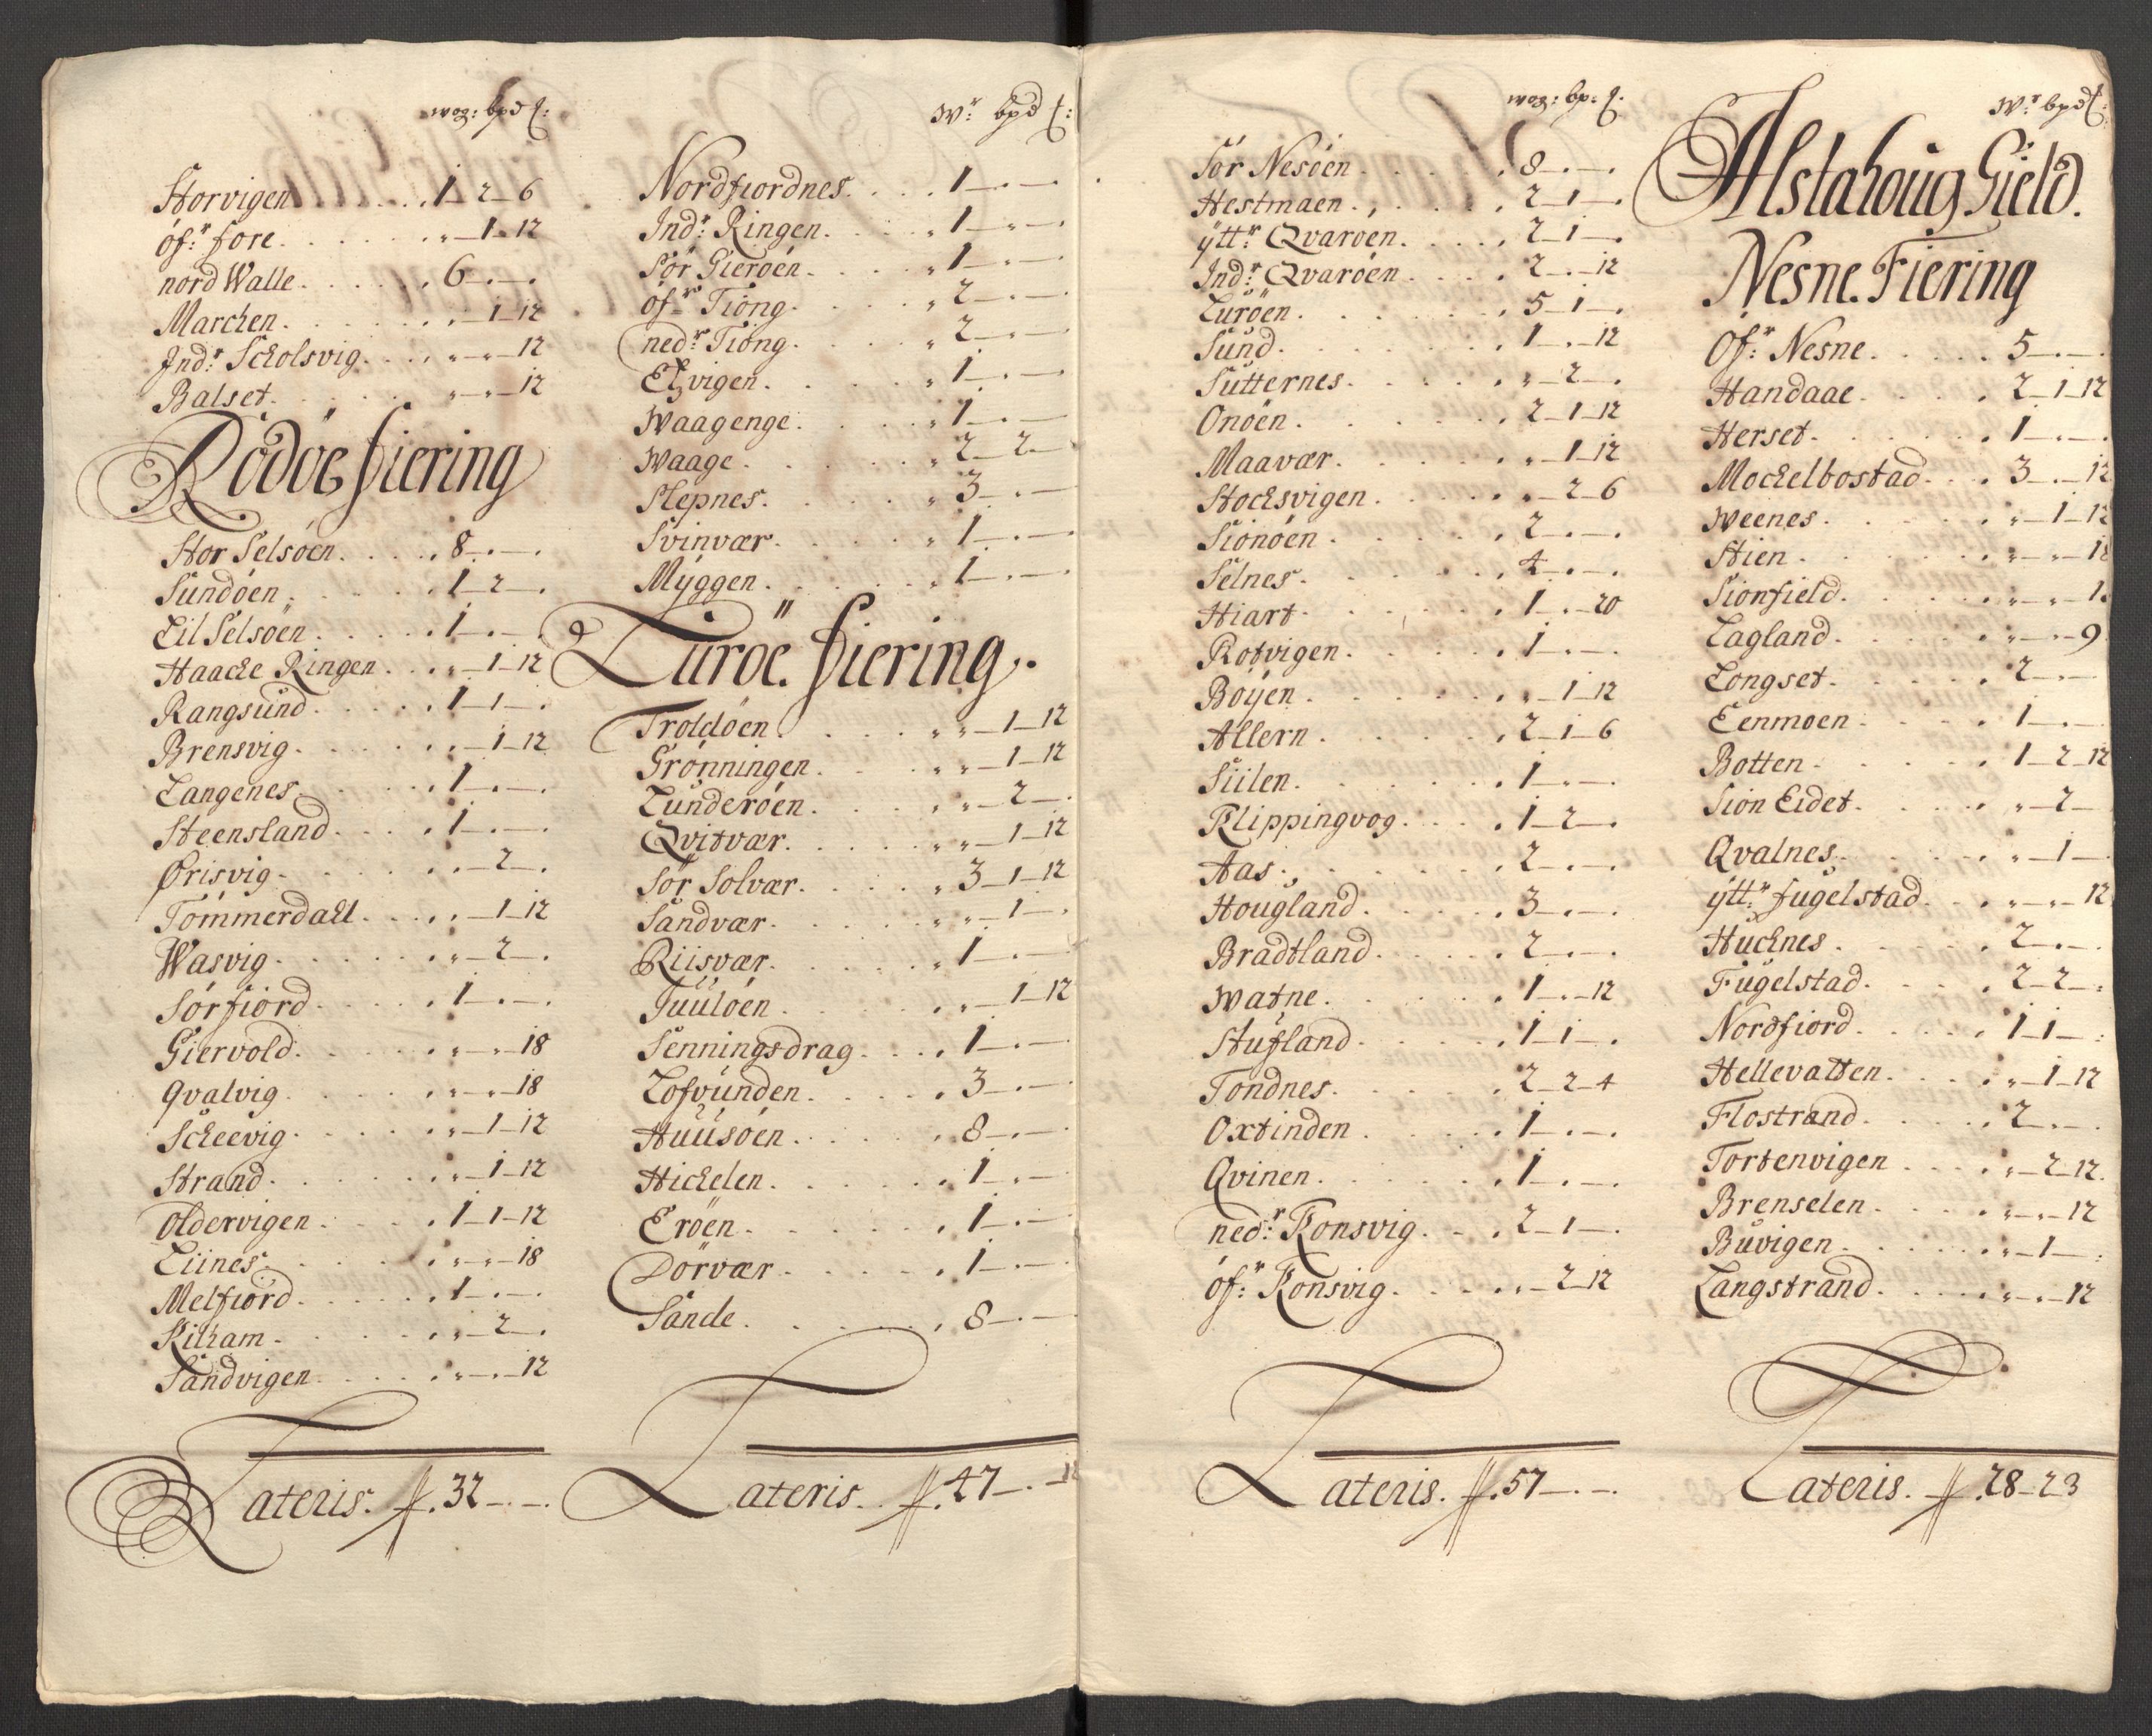 wog: bpd ℔:
Storvigen . . . . 1 – 2 – 6
öf:r fore . . . . „ – 1 – 12
nord Walle . . . . 6 – „ – „
Marchen . . . . „ – 1 – 12
Ind:r Scholsvig . . . . „ – „ – 12
Balset . . . . „ – „ – 12
Rödöe fiering
Stor Selsöen . . . . 8 – „ – „
Sundöen . . . . 1 – 2 – „
Lil Selsöen . . . . 1 – „ – „
Haache Ringen . . . . „ – 1 – 12
Rangsund . . . . 1 – 1 – „
Brensvig . . . . „ – 1 – 12
Langenes . . . . 1 – „ – „
Steensland . . . . 1 – „ – „
Ørisvig . . . . „ – 2 – „
Tömmerdahl . . . . „ – 1 – 12
Wasvig . . . . „ – 2 – „
Sörfiord . . . . 1 – „ – „
Giervold . . . . „ – „ – 18
Qvalvig . . . . „ – „ – 18
Scheevig . . . . „ – 1 – 12
Strand . . . . „ – 1 – 12
Oldervigen . . . . 1 – 1 – 12
Liines . . . . „ – „ – 18
Melfiord . . . . 1 – „ – „
Kilham . . . . „ – 2 – „
Sandvigen . . . . „ – „ – 12
Lateris . 32 – „ – „
W:r bpd ℔:
Nordfiordnes . . . . 1 – „ – „
Ind:r Ringen . . . . 1 – „ – „
Sör Gieröen . . . . 1 – „ – „
öf:r Tiong . . . . 2 – „ – „
ned:r Tiong . . . . 2 – „ – „
Elvigen . . . . 1 – „ – „
Waagenge . . . . 1 – „ – „
Waage . . . . 2 – 2 – „
Slepnes . . . . 3 – „ – „
Svinvær . . . . 1 – „ – „
Myggen . . . . 1 – „ – „
Luröe fiering
Troldöen . . . . „ – 1 – 12
Grönningen . . . . „ – 1 – 12
Lunderöen . . . . „ – 2 – „
Qvitvær . . . . „ – 1 – 12
Sör Solvær . . . . 3 – 1 – 12
Sandvær . . . . „ – 1 – „
Riisvær . . . . 1 – „ – „
Tuulöen . . . . „ – 1 – 12
Senningsdrag . . . . 1 – „ – „
Lofvunden . . . . 3 – „ – „
Huusöen . . . . 8 – „ – „
Hichelen . . . . 1 – „ – „
Eröen . . . . 1 – „ – „
Dörvær . . . . 1 – „ – „
Sande . . . . 8 – „ – „
Lateris . 47 – „ – 12
wog: bp: ℔:
Sör Nesöen . . . . 8 – „ – „
Hestmaen . . . . 2 – 1 – „
ytt:r Qvaröen . . . . 2 – 1 – „
Ind:r Qvaröen . . . . 2 – „ – 12
Luröen . . . . 5 – 1 – „
Sund . . . . 1 – „ – 12
Sutternes . . . . „ – 2 – „
Onöen . . . . 2 – 1 – 12
Maavær . . . . „ – 1 – 12
Stochsvigen . . . . „ – 2 – 6
Sionöen . . . . 2 – „ – „
Selnes . . . . 4 – „ – „
Hiart . . . . 1 – „ – 20
Rotvigen . . . . 1 – „ – „
Böyen . . . . „ – 1 – 12
Allern . . . . 2 – 1 – 6
Siilen . . . . 1 – „ – „
Klippingvog . . . . 1 – 2 – „
Aas . . . . 2 – „ – „
Hougland . . . . 3 – „ – „
Bradtland . . . . 2 – „ – „
Watne . . . . 1 – „ – 12
Stufland . . . . 1 – 1 – „
Tondnes . . . . 2 – 2 – 4
Oxtinden . . . . 1 – „ – „
Qvinen . . . . 1 – „ – „
ned:r Konsvig . . . . 2 – 1 – „
öf:r Konsvig . . . . „ – 2 – 12
Lateris . 57 – „ – „
W:r bpd ℔:
Alstahoug Gield.
Nesne Fiering
Öf:r Nesne . . . . 5 – „ – „
Handaae . . . . 2 – 1 – 12
Herset . . . . 1 – „ – „
Mochelbostad . . . . 3 – „ – 12
Weenes . . . . „ – 1 – 12
Stien . . . . „ – „ – 18
Sionfield . . . . „ – „ – 1
Lagland . . . . „ – „ – 9
Longset . . . . 2 – „ – „
Eenmoen . . . . 1 – „ – „
Botten . . . . 1 – 2 – 12
Sion Eidet . . . . „ – 2 – „
Qvalnes . . . . „ – 1 – „
ytt:r fugelstad . . . . „ – „ – 12
Huchnes . . . . 2 – „ – „
Fugelstad . . . . 2 – 2 – „
Nordfiord . . . . 1 – 1 – „
Hellevatten . . . . „ – 1 – 12
Flostrand . . . . 2 – „ – „
Tortenvigen . . . . „ – 2 – 12
Brenselen . . . . „ – „ – 12
Buvigen . . . . „ – 1 – „
Langstrand . . . . „ – „ – 12
Lateris . 28 – 2 3